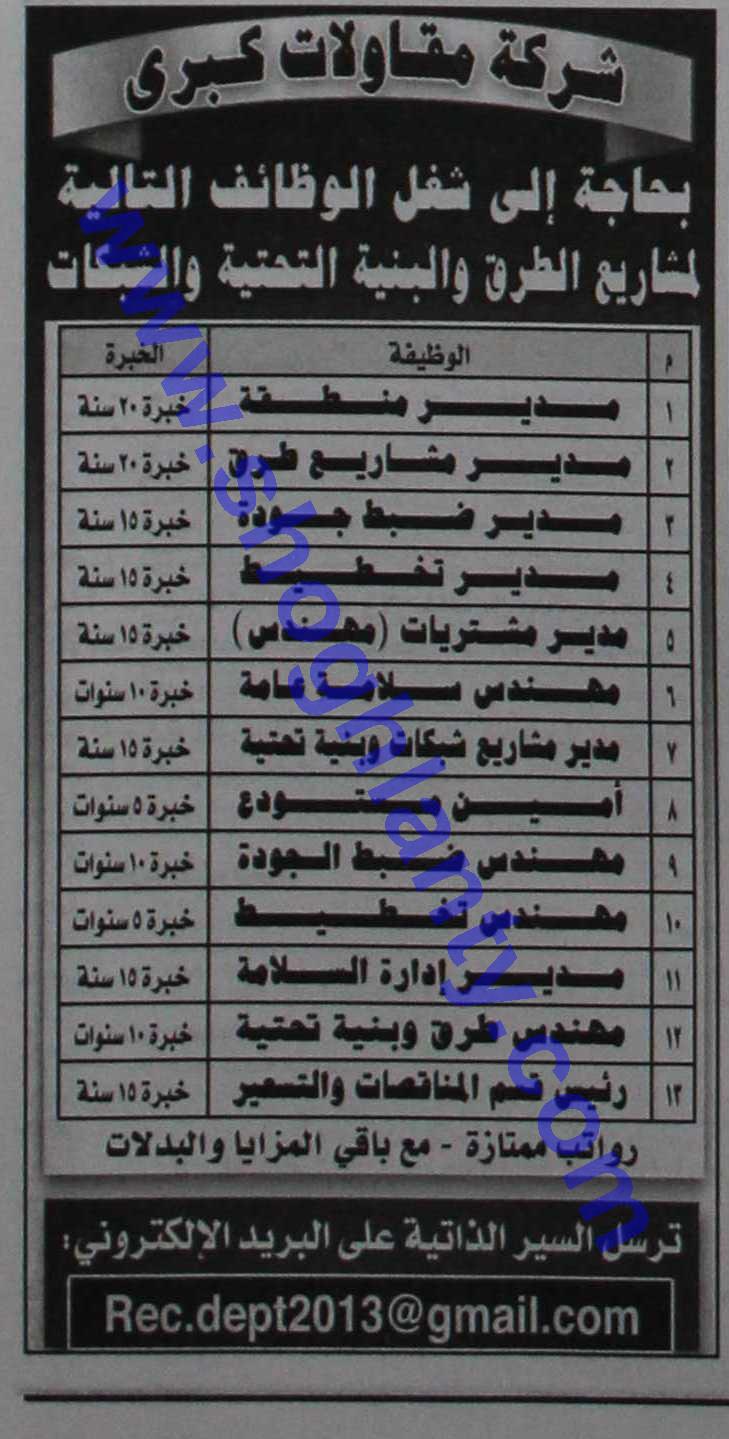 شركة مقاولات كبرى
بحاجة إلى شغل الوظائف التالية
لمشاريع الطرق والبنية التحتية والشبكات
م الوظيفة الخبرة
١ مديـر منطقة خبرة ٢٠ سنة
٢ مديـر مشاريع طرق خبرة ٢٠ سنة
٣ مديـر ضبط جودة خبرة ١٥ سنة
٤ مديـر تخطيط خبرة ١٥ سنة
٥ مدير مشتريات (مهندس) خبرة ١٥ سنة
٦ مهندس سلامة عامة خبرة ١٠ سنوات
٧ مدير مشاريع شبكات وبنية تحتية خبرة ١٥ سنة
٨ أمين مستودع خبرة ٥ سنوات
٩ مهندس ضبط الجودة خبرة ١٠ سنوات
١٠ مهندس تخطيط خبرة ٥ سنوات
١١ مدير إدارة السلامة خبرة ١٥ سنة
١٢ مهندس طرق وبنية تحتية خبرة ١٠ سنوات
١٣ رئيس قسم المناقصات والتسعير خبرة ١٥ سنة
رواتب ممتازة - مع باقي المزايا والبدلات
ترسل السير الذاتية على البريد الإلكتروني:
Rec.dept2013@gmail.com
www.shoghlanty.com